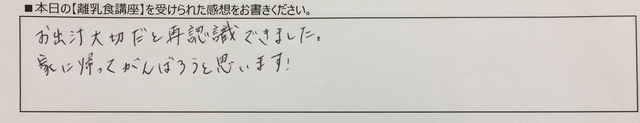 ■本日の【離乳食講座】を受けられた感想をお書きください。
お出汁大切だと再認識できました。
家に帰ってがんばろうと思います!